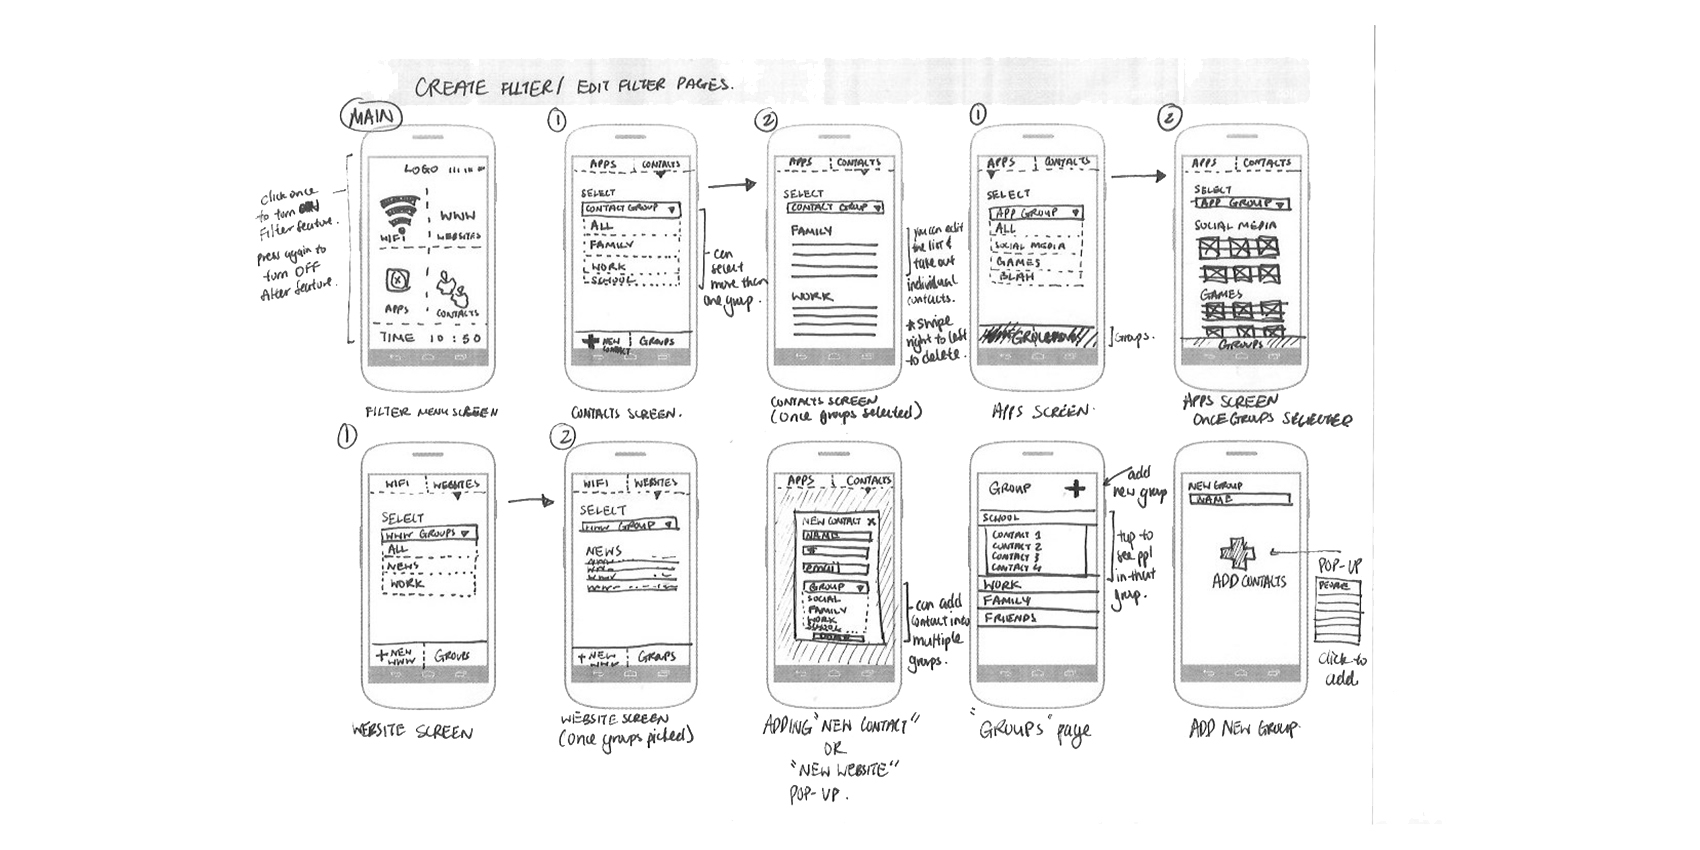 CREATE FILTER/ EDIT FILTER PAGES.
MAIN
click once
to turn ON
Filter feature.
press again to
turn OFF
filter feature.
LOGO
WIFI
WWW
WEBSITES
APPS
CONTACTS
TIME 10:50
FILTER MENU SCREEN
1
APPS CONTACTS
SELECT
CONTACT GROUP
ALL
FAMILY
WORK
SCHOOL
+ NEW CONTACT
GROUPS
can
select
more than
one group.
CONTACTS SCREEN.
2
APPS CONTACTS
SELECT
CONTACT GROUP
FAMILY
WORK
you can edit
the list &
take out
individual
contacts.
* swipe
right to left
to delete.
CONTACTS SCREEN
(Once groups selected)
1
APPS CONTACTS
SELECT
APP GROUP
ALL
SOCIAL MEDIA
GAMES
BLAH
Groups.
APPS SCREEN.
2
APPS CONTACTS
SELECT
APP GROUP
SOCIAL MEDIA
GAMES
GROUPS
APPS SCREEN
ONCE GROUPS SELECTED
1
WIFI WEBSITES
SELECT
WWW GROUPS
ALL
NEWS
WORK
+ NEW
WWW
GROUPS
WEBSITE SCREEN
2
WIFI WEBSITES
SELECT
WWW GROUP
NEWS
+ NEW
WWW
GROUPS
WEBSITE SCREEN
(Once groups picked)
APPS CONTACTS
NEW CONTACT X
NAME
#
email
GROUP
SOCIAL
FAMILY
WORK
SCHOOL
can add
contact into
multiple
groups.
ADDING "NEW CONTACT"
OR
"NEW WEBSITE"
POP-UP.
GROUP +
add
new group
SCHOOL
CONTACT 1
CONTACT 2
CONTACT 3
CONTACT 4
WORK
FAMILY
FRIENDS
tap to
see ppl
in that
group.
"GROUPS" page
NEW GROUP
NAME
ADD CONTACTS
POP-UP
PEOPLE
click to
add
ADD NEW GROUP.